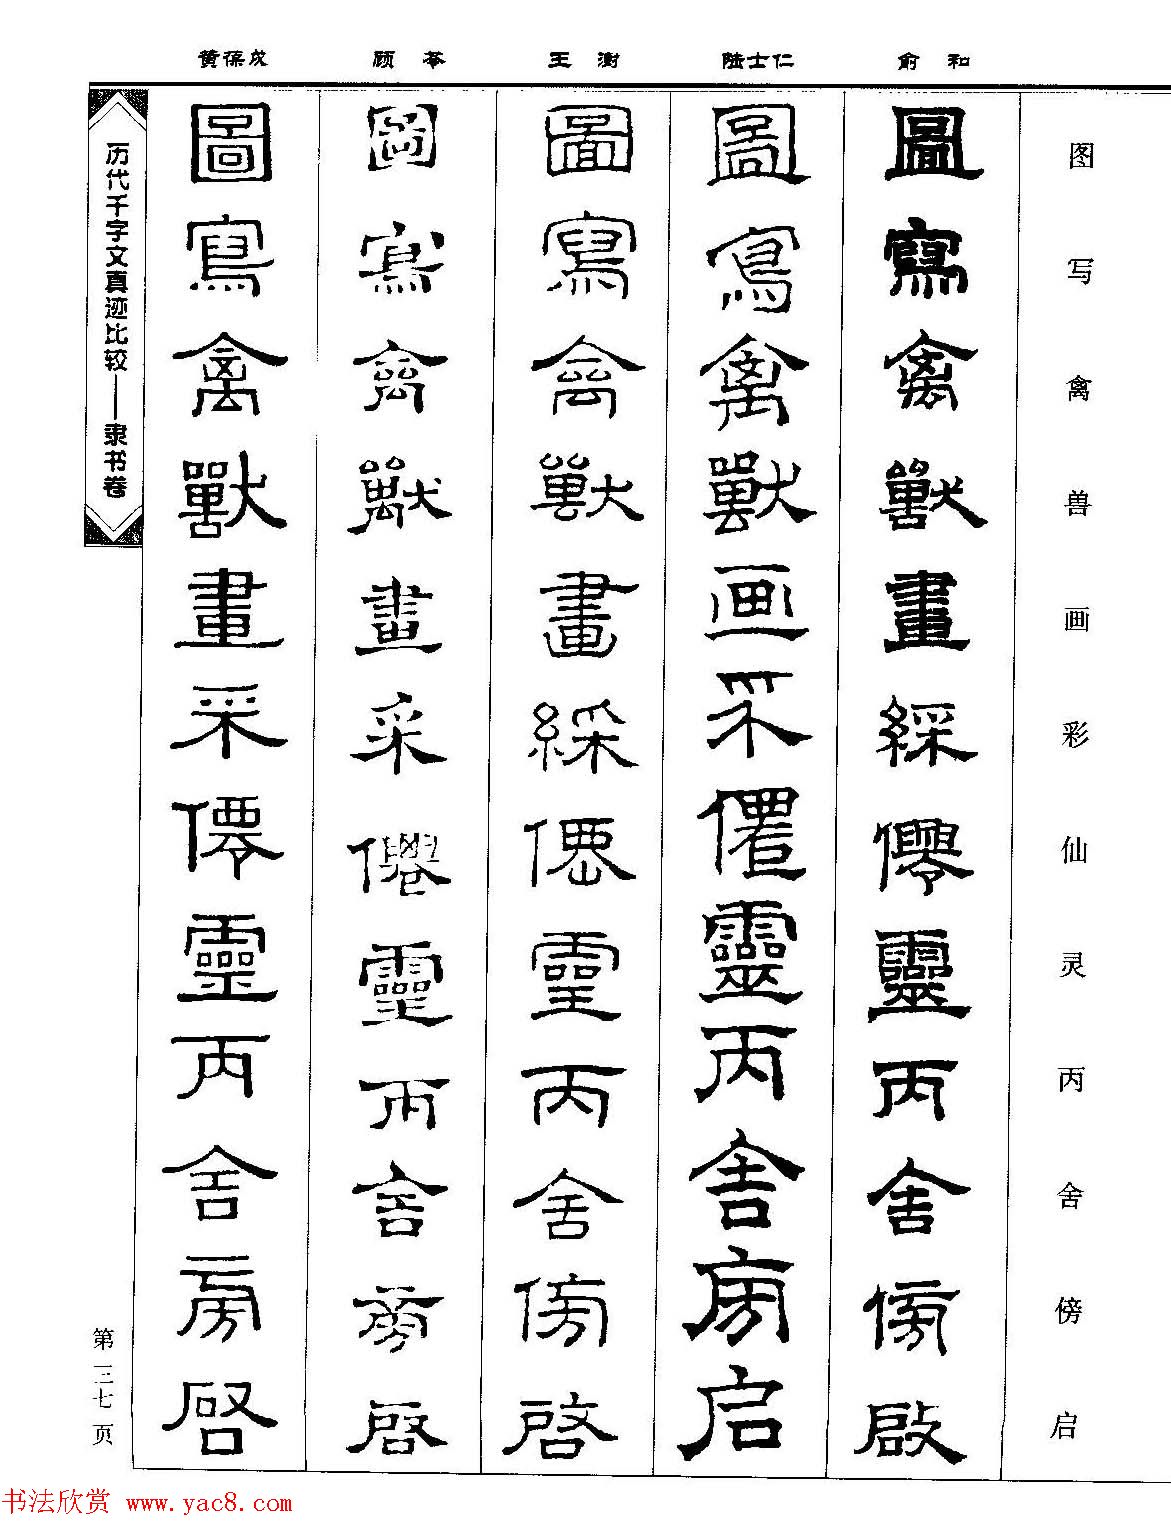 黄葆戉 顾苓 王澍 陆士仁 俞和
图写禽兽画彩仙灵丙舍傍启
圖寫禽獸畫綵僊靈丙舍傍啟
圖寫禽獸画采僊靈丙舍房启
圖寫禽獸畫綵僊靈丙舍傍啓
圖寫禽獸畫采僊靈丙舍旁啓
圖寫禽獸畫采僊靈丙舍旁啓
历代千字文真迹比较——隶书卷
第一三七页
书法欣赏 www.yac8.com